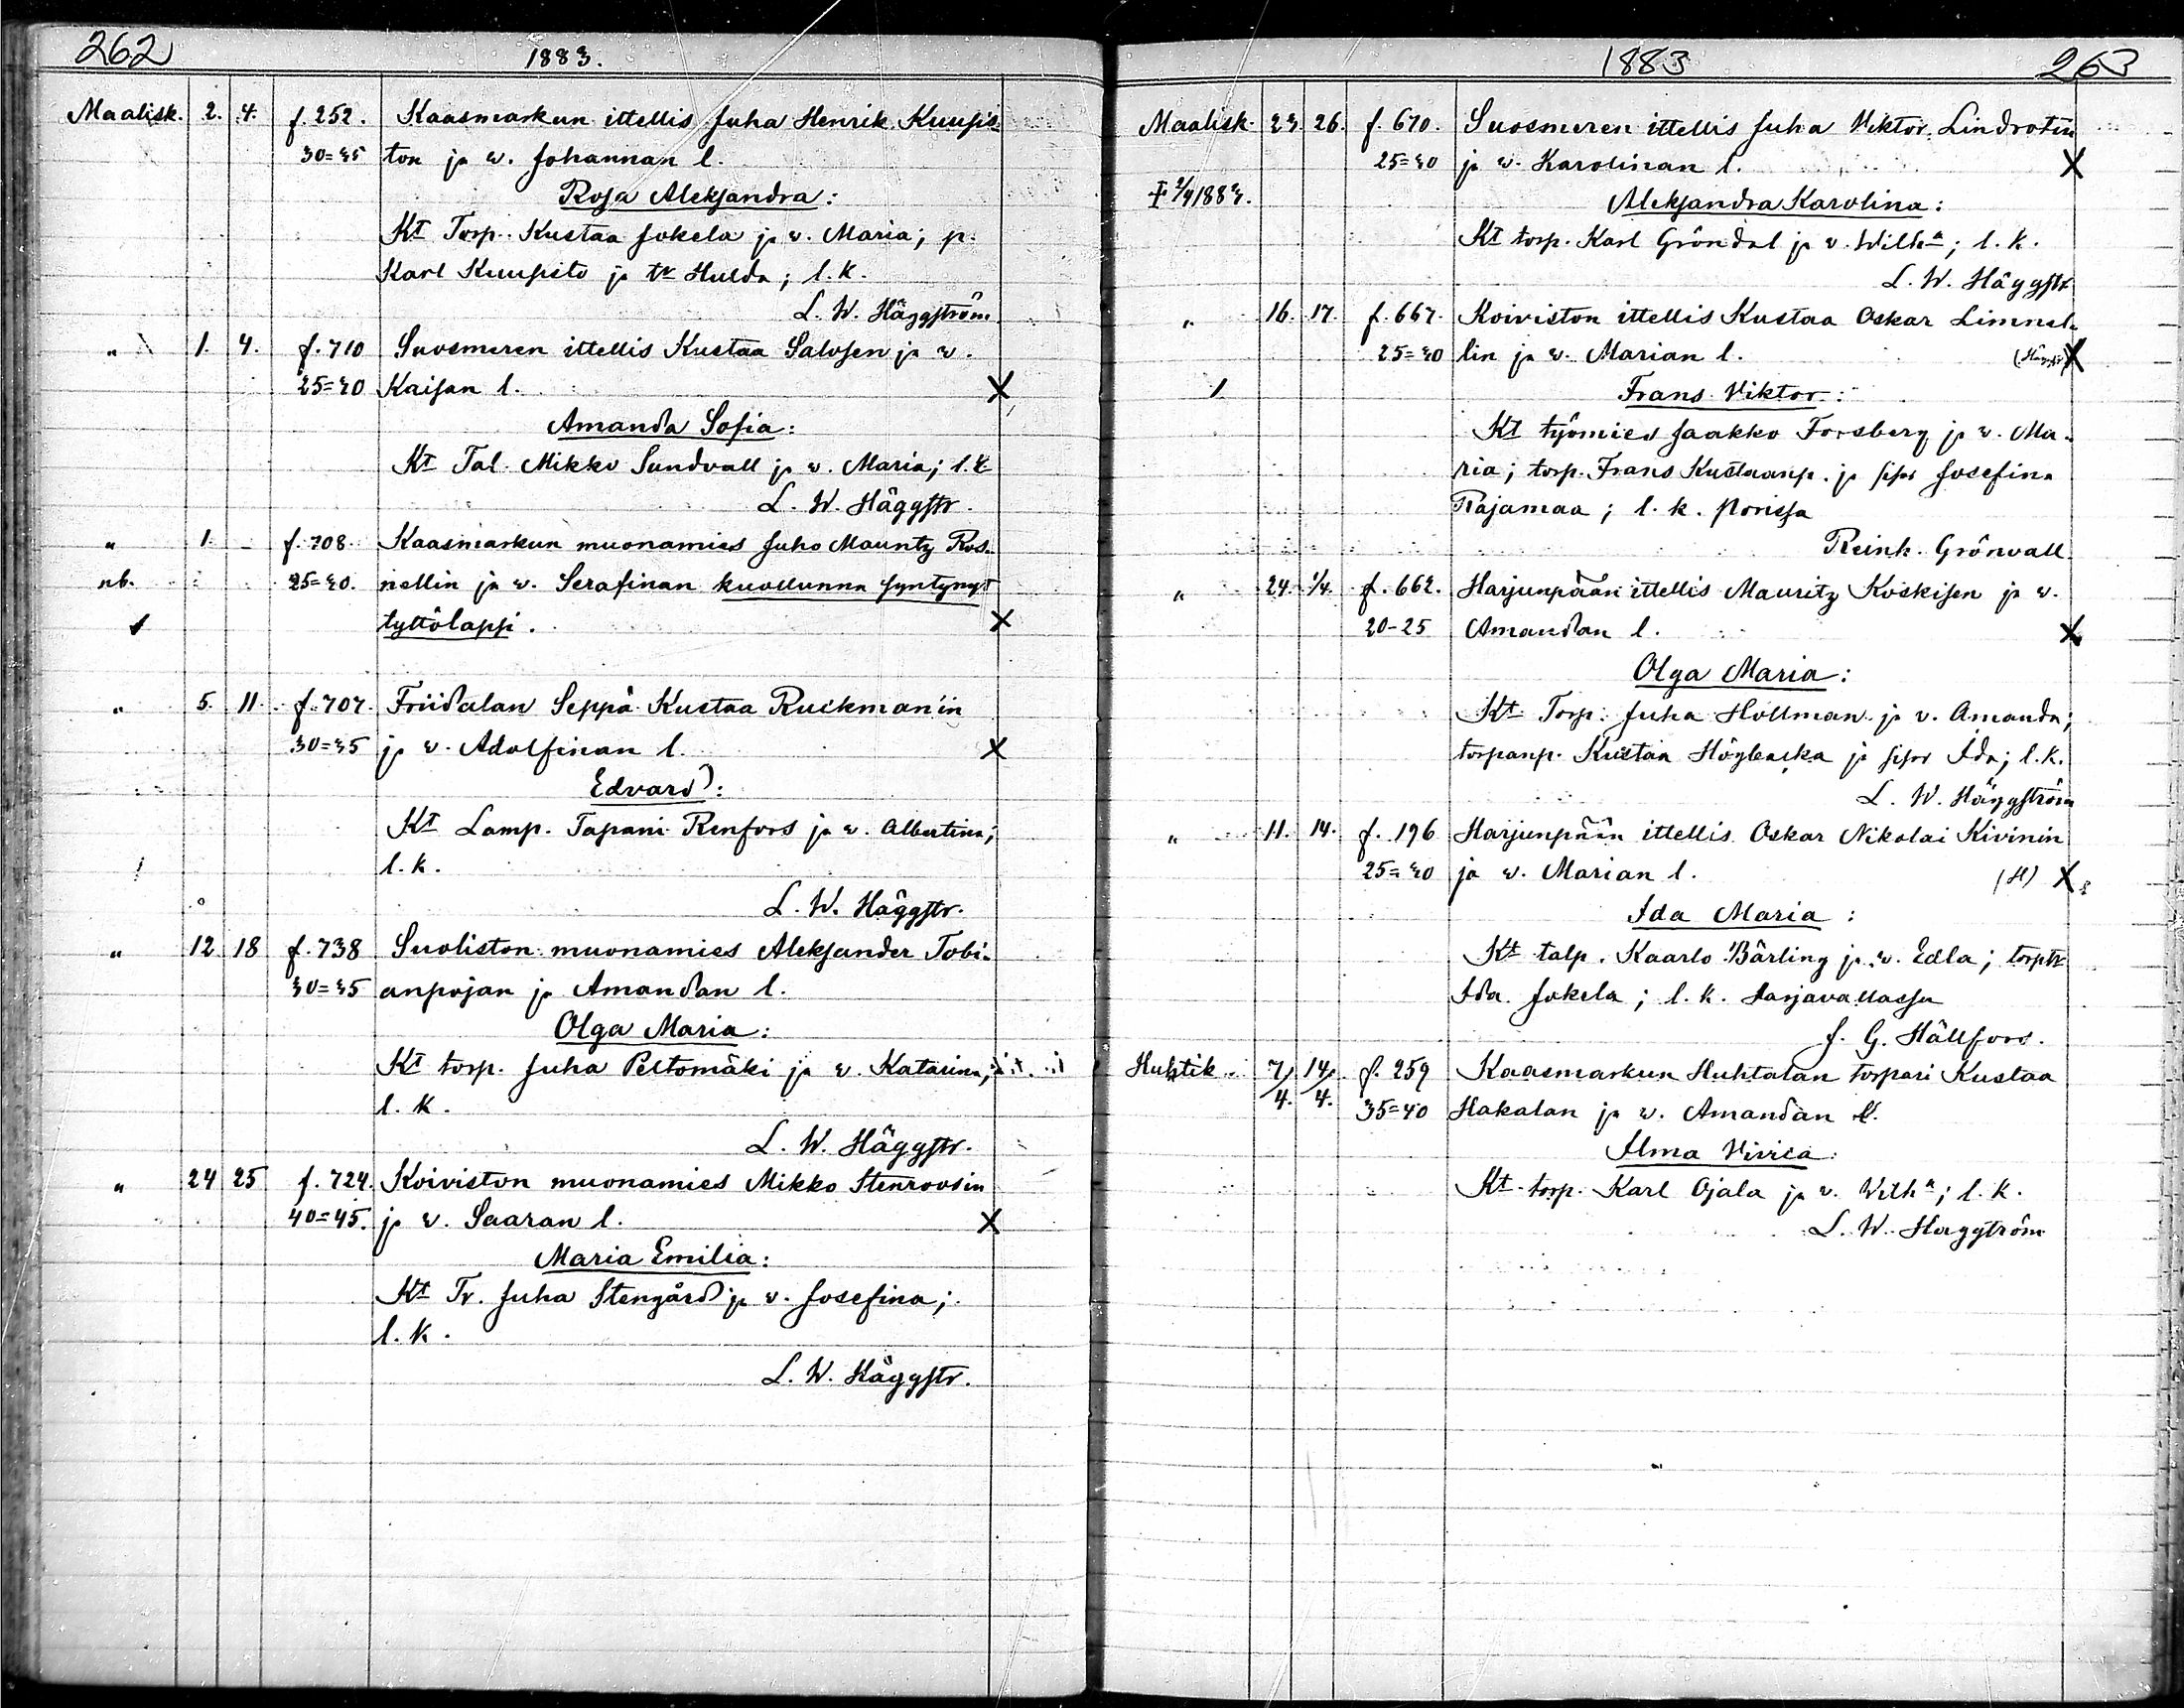 262
1883.
Maalisk. 2. 4. f. 252. Kaasmarkun ittellis Juha Henrik Kuusis-
30=35 ton ja v. Johannan l.
Rosa Aleksandra:
Kt Torp. Kustaa Jokela ja v. Maria; p.
Karl Kuusisto ja tr Hulda; l. k.
L. W. Häggström
" 1. 4. f. 710 Suosmeren ittellis Kustaa Salosen ja v.
25=30 Kaisan l. X
Amanda Sofia:
Kt Tal. Mikko Sundvall ja v. Maria; l. k.
L. W. Häggstr.
" 1. - f. 708. Kaasmarkun muonamies Juho Mauritz Ros-
nb. 25=30. nellin ja v. Serafinan kuollunna syntynyt
tyttölapsi. X
" 5. 11. f. 707. Friidalan Seppä Kustaa Ruckman'in
30=35 ja v. Adolfinan l. X
Edvard:
Kt Lamp. Tapani Renfors ja v. Albertina;
l. k.
L. W. Häggstr.
" 12 18 f. 738 Suoliston muonamies Aleksander Tobi-
30=35 anpojan ja Amandan l.
Olga Maria:
Kt torp. Juha Peltomäki ja v. Katarina;
l. k.
L. W. Häggstr.
" 24 25 f. 724. Koiviston muonamies Mikko Stenroosin
40=45. ja v. Saaran l. X
Maria Emilia:
Kt Tr. Juha Stengård ja v. Josefina;
l. k.
L. W. Häggstr.
1883
263
Maalisk. 23 26. f. 670. Suosmeren ittellis Juha Viktor Lindrotin
25=30 ja v. Karolinan l. X
2/4 1883. Aleksandra Karolina:
Kt torp. Karl Gröndal ja v. Wilha; l. k.
L. W. Häggstr.
" 16. 17. f. 667. Koiviston ittellis Kustaa Oskar Limnel-
25=30 lin ja v. Marian l. X
Frans Viktor:
Kt työmies Jaakko Forsberg ja v. Ma-
ria; torp. Frans Kustaanp. ja sisar Josefina
Rajamaa; l. k. Porissa
Reink. Grönvall
" 24. 1/4. f. 662. Harjunpään ittellis Mauritz Koskisen ja v.
20-25 Amandan l. X
Olga Maria:
Kt Torp. Juha Hollman ja v. Amanda;
torpanp. Kustaa Högbacka ja sisar Ida; l. k.
L. W. Häggström
" 11. 14. f. 196 Harjunpään ittellis Oskar Nikolai Kivinin
25=30 ja v. Marian l. (H) X
Ida Maria:
Kt talp. Kaarlo Bärling ja v. Edla; torptr
Ida Jokela; l. k. Harjavallassa
J. G. Hällfors.
Huhtik. 7/4. 14/4. f. 259 Kaasmarkun Huhtalan torpari Kustaa
35=40 Hakalan ja v. Amandan l.
Alma Viviea:
Kt torp. Karl Ojala ja v. Wilha; l. k.
L. W. Häggström